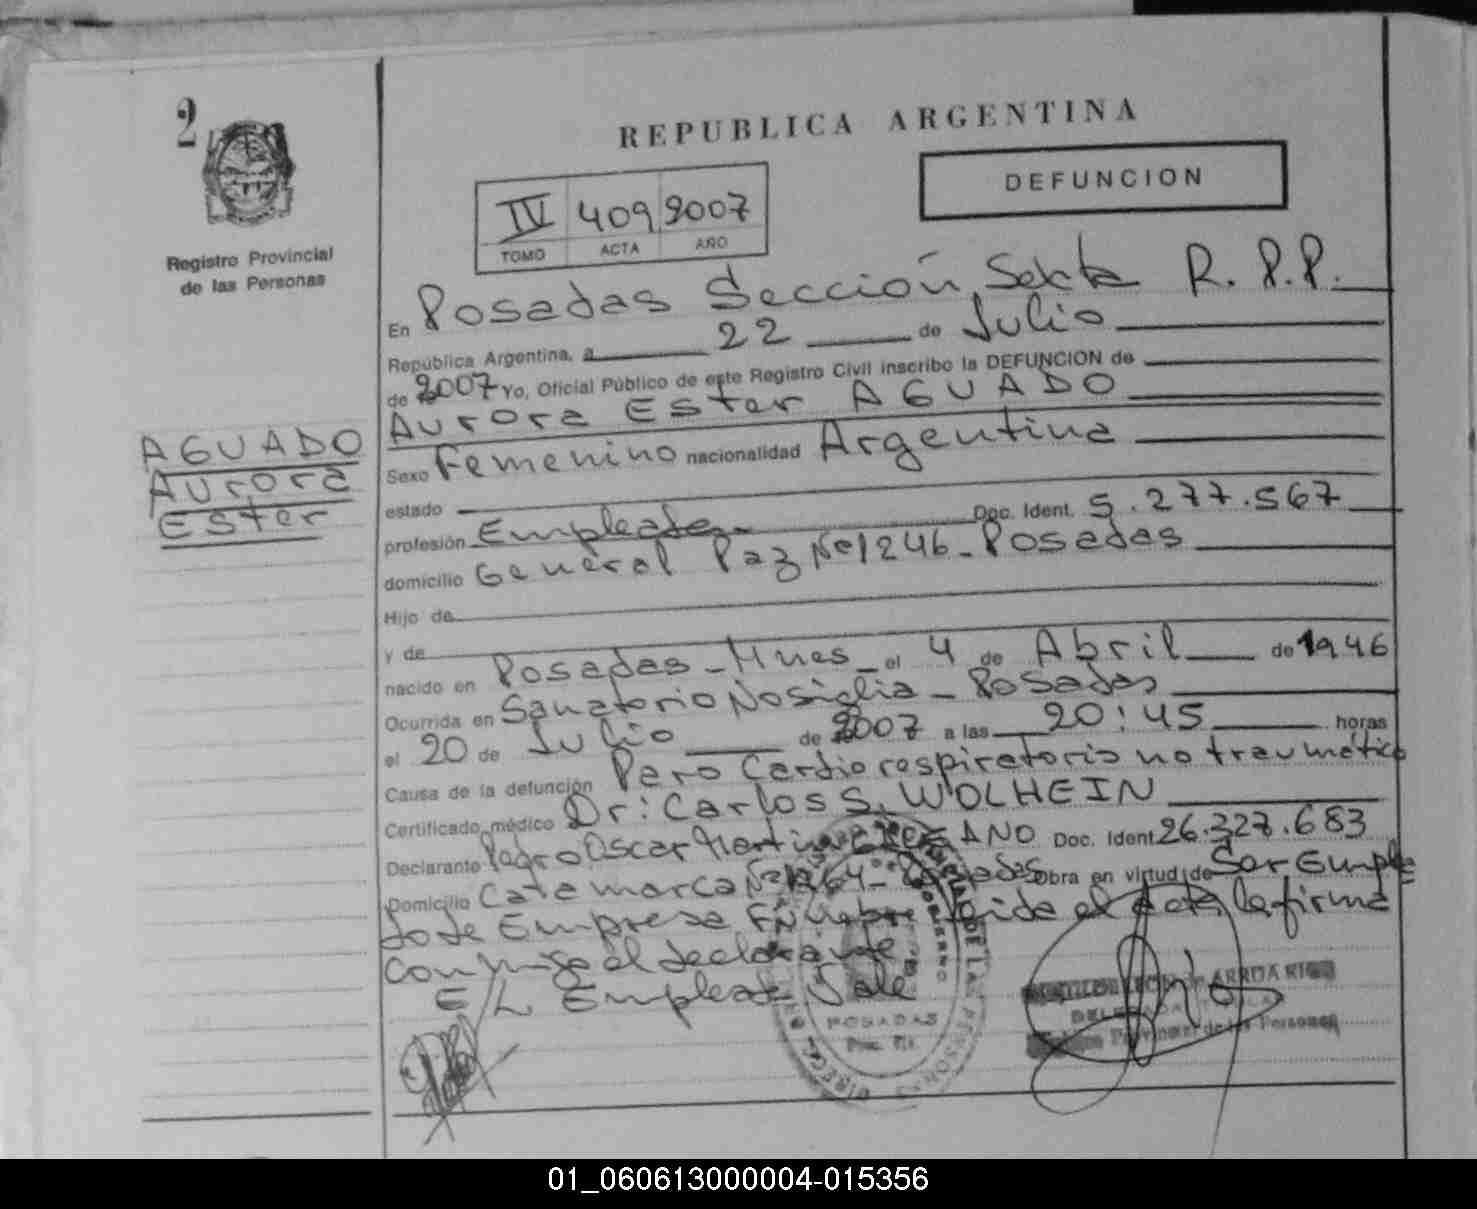 2
REPUBLICA ARGENTINA
DEFUNCION
IV 409 2007
TOMO ACTA AÑO
Registro Provincial
de las Personas
En Posadas Sección Sexta R.P.P.
República Argentina, a 22 de Julio
de 2007 Yo, Oficial Público de este Registro Civil inscribo la DEFUNCION de
Aurora Ester AGUADO
AGUADO
Aurora
Ester
Sexo Femenino nacionalidad Argentina
estado
profesión Empleada Doc. Ident. 5.277.567
domicilio General Paz Nº 1246 - Posadas
Hijo de
y de
nacido en Posadas - Mnes - el 4 de Abril de 1946
Ocurrida en Sanatorio Nosiglia - Posadas
el 20 de Julio de 2007 a las 20:45 horas
Causa de la defunción Paro Cardiorespiratorio no traumático
Certificado médico Dr: Carlos S. WOLHEIN
Declarante Pedro Oscar Martin Doc. Ident. 26.327.683
Domicilio Catamarca Nº 1264 - Posadas Obra en virtud de Ser Emplea
do de Empresa Fúnebre leida el acta la firma
conmigo el declarante
E/L Empleada Vale
POSADAS
01_060613000004-015356